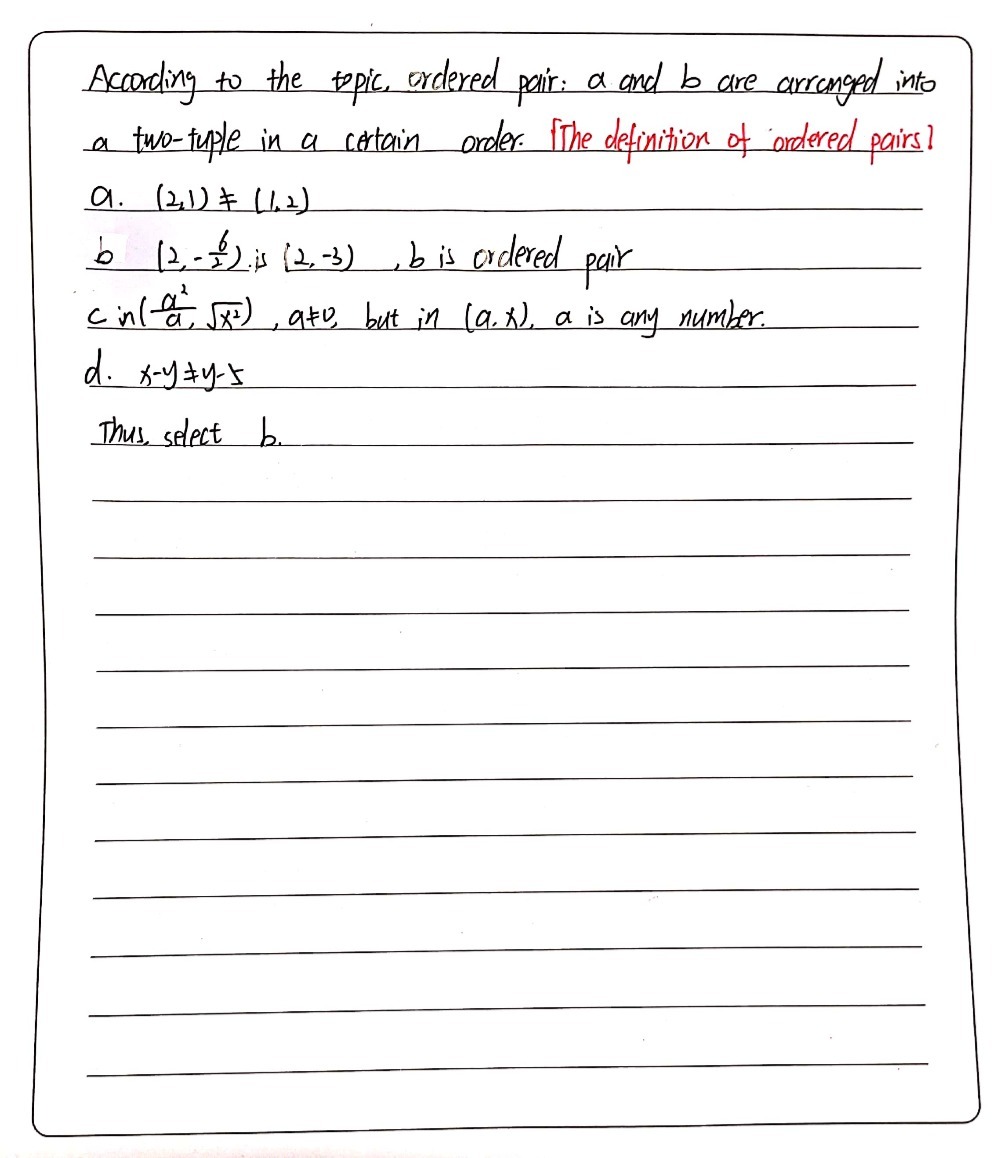 According to the topic, ordered pair: a and b are arranged into
a two-tuple in a certain order. [The definition of ordered pairs]
a. (2,1) ≠ (1,2)
b (2, -6/2). is (2, -3) , b is ordered pair
c in(a²/a, √x²) , a≠0, but in (a, x), a is any number.
d. x-y≠y-5
Thus, select b.